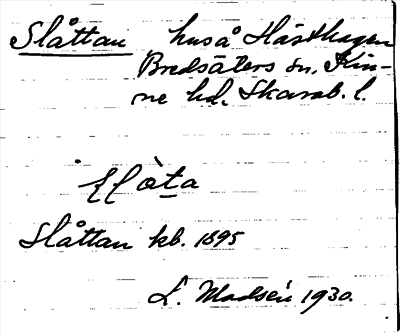 Slåttan huså Hästhagen
Bredsäters sn, Kin-
ne hd. Skarab. l.
Slåttan kb. 1895
L. Madsén 1930.